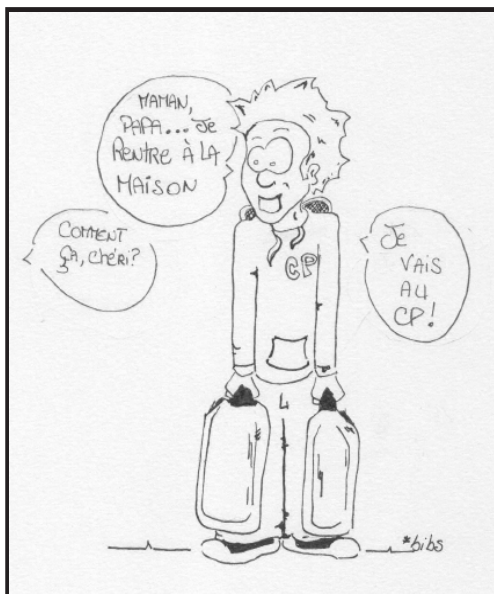 MAMAN,
PAPA... JE
RENTRE À LA
MAISON
COMMENT
ÇA, CHÉRI?
JE
VAIS
AU
CP!
CP
*bibs